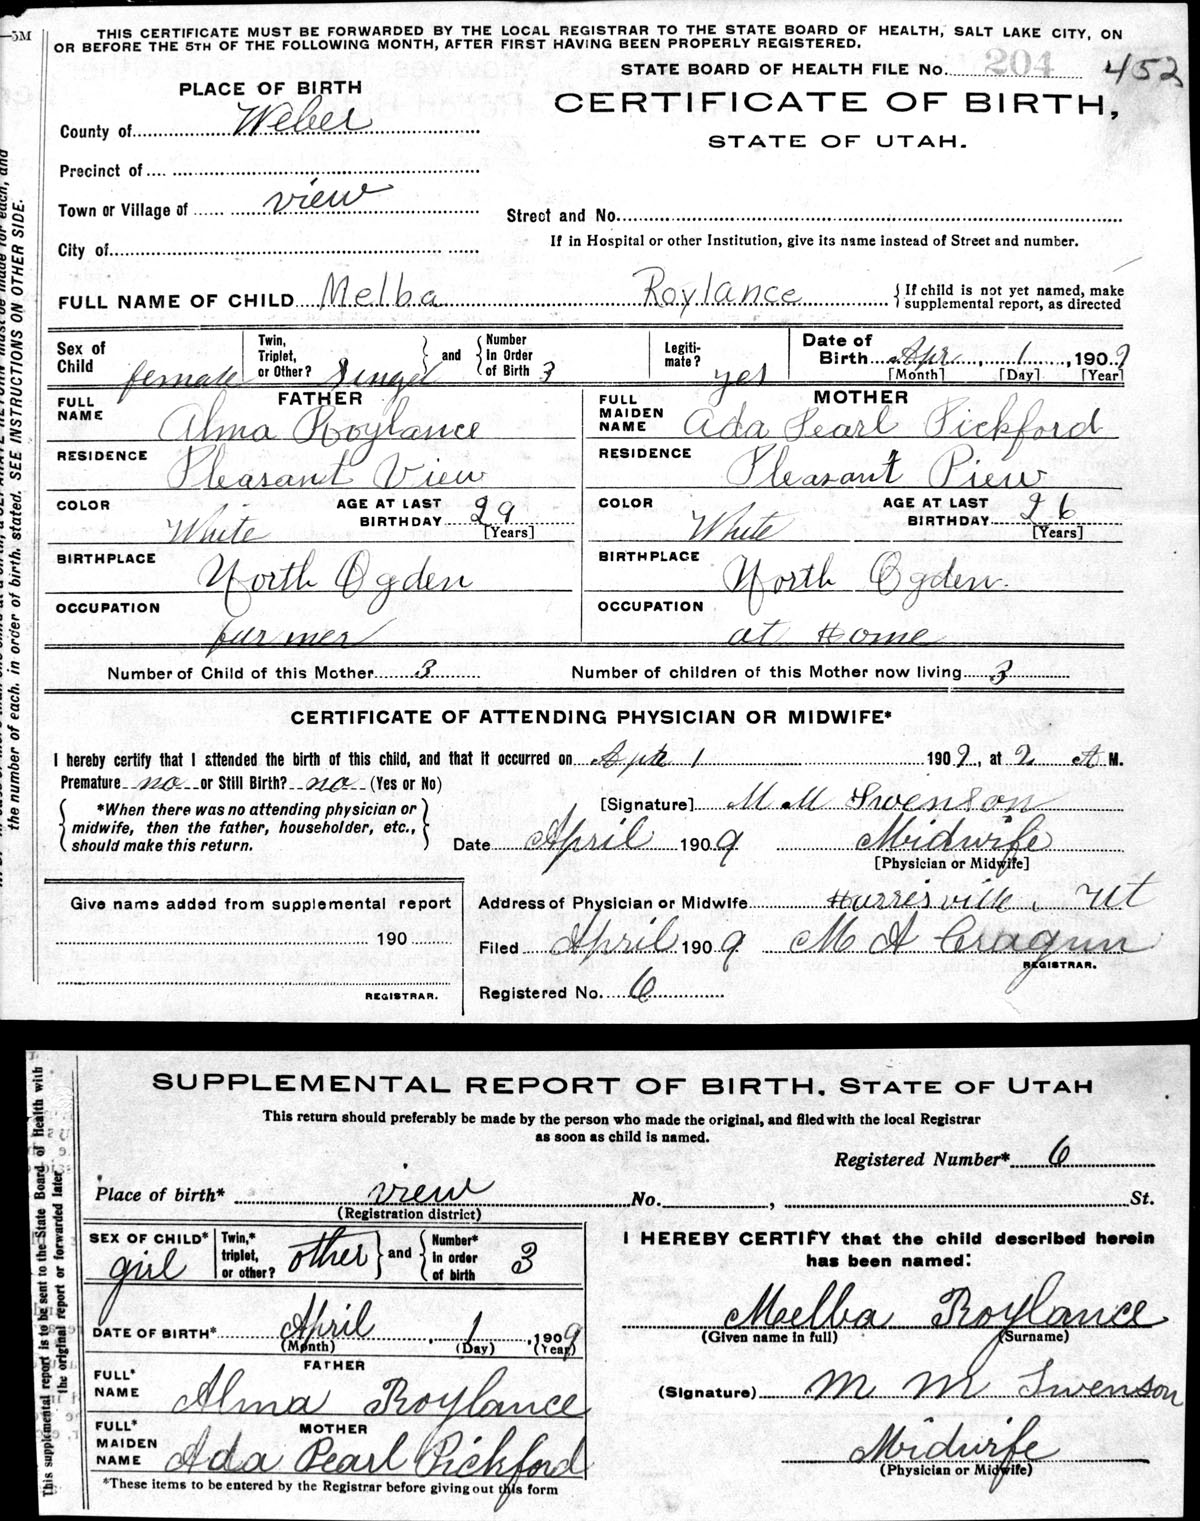 5M
THIS CERTIFICATE MUST BE FORWARDED BY THE LOCAL REGISTRAR TO THE STATE BOARD OF HEALTH, SALT LAKE CITY, ON
OR BEFORE THE 5TH OF THE FOLLOWING MONTH, AFTER FIRST HAVING BEEN PROPERLY REGISTERED.
STATE BOARD OF HEALTH FILE No. 204 452
PLACE OF BIRTH
CERTIFICATE OF BIRTH,
STATE OF UTAH.
County of Weber
Precinct of
Town or Village of view
Street and No.
City of
If in Hospital or other Institution, give its name instead of Street and number.
FULL NAME OF CHILD Melba Roylance { If child is not yet named, make supplemental report, as directed
Sex of Child female Twin, Triplet, or Other? Singel } and { Number In Order of Birth 3 Legiti-mate? yes Date of Birth Apr, 1, 1909
[Month] [Day] [Year]
FATHER MOTHER
FULL NAME Alma Roylance FULL MAIDEN NAME Ada Pearl Pickford
RESIDENCE Pleasant View RESIDENCE Pleasant Piew
COLOR White AGE AT LAST BIRTHDAY 29 [Years] COLOR White AGE AT LAST BIRTHDAY 26 [Years]
BIRTHPLACE North Ogden BIRTHPLACE North Ogden
OCCUPATION farmer OCCUPATION at Home
Number of Child of this Mother 3 Number of children of this Mother now living 3
CERTIFICATE OF ATTENDING PHYSICIAN OR MIDWIFE*
I hereby certify that I attended the birth of this child, and that it occurred on Apr 1 1909, at 2 A M.
Premature no or Still Birth? no (Yes or No)
{ *When there was no attending physician or midwife, then the father, householder, etc., should make this return. }
[Signature] M M Swenson
Date April 1909 Midwife
[Physician or Midwife]
Give name added from supplemental report
190
REGISTRAR.
Address of Physician or Midwife Harrisville, Ut
Filed April 1909 M A Cragun
REGISTRAR.
Registered No. 6
the number of each, in order of birth, stated. SEE INSTRUCTIONS ON OTHER SIDE.
SUPPLEMENTAL REPORT OF BIRTH, STATE OF UTAH
This return should preferably be made by the person who made the original, and filed with the local Registrar
as soon as child is named.
Registered Number* 6
Place of birth* view No. , St.
(Registration district)
SEX OF CHILD* girl Twin,* triplet, or other? other } and { Number* in order of birth 3
DATE OF BIRTH* April, 1, 1909
(Month) (Day) (Year)
FATHER
FULL* NAME Alma Roylance
MOTHER
FULL* MAIDEN NAME Ada Pearl Pickford
*These items to be entered by the Registrar before giving out this form
I HEREBY CERTIFY that the child described herein
has been named:
Melba Roylance
(Given name in full) (Surname)
(Signature) M M Swenson
Midwife
(Physician or Midwife)
This supplemental report is to be sent to the State Board of Health with
the original report or forwarded later